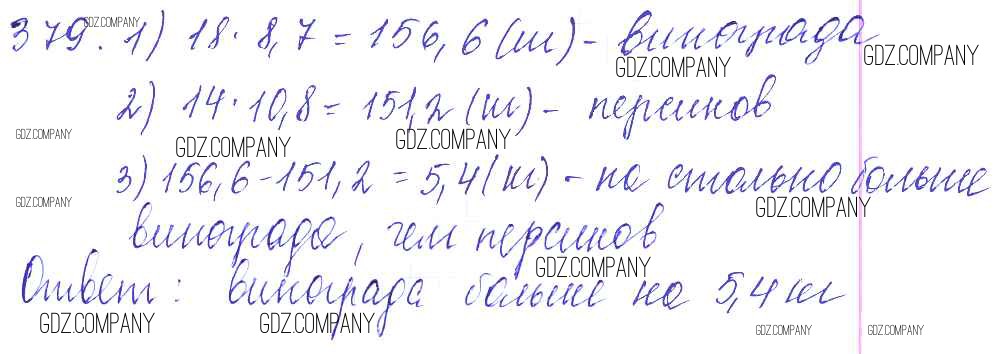 379. 1) 18 · 8,7 = 156,6 (кг) - винограда
2) 14 · 10,8 = 151,2 (кг) - персиков
3) 156,6 - 151,2 = 5,4 (кг) - на столько больше
винограда, чем персиков
Ответ: винограда больше на 5,4 кг
GDZ.COMPANY
GDZ.COMPANY
GDZ.COMPANY
GDZ.COMPANY
GDZ.COMPANY
GDZ.COMPANY
GDZ.COMPANY
GDZ.COMPANY
GDZ.COMPANY
GDZ.COMPANY
GDZ.COMPANY
GDZ.COMPANY
GDZ.COMPANY